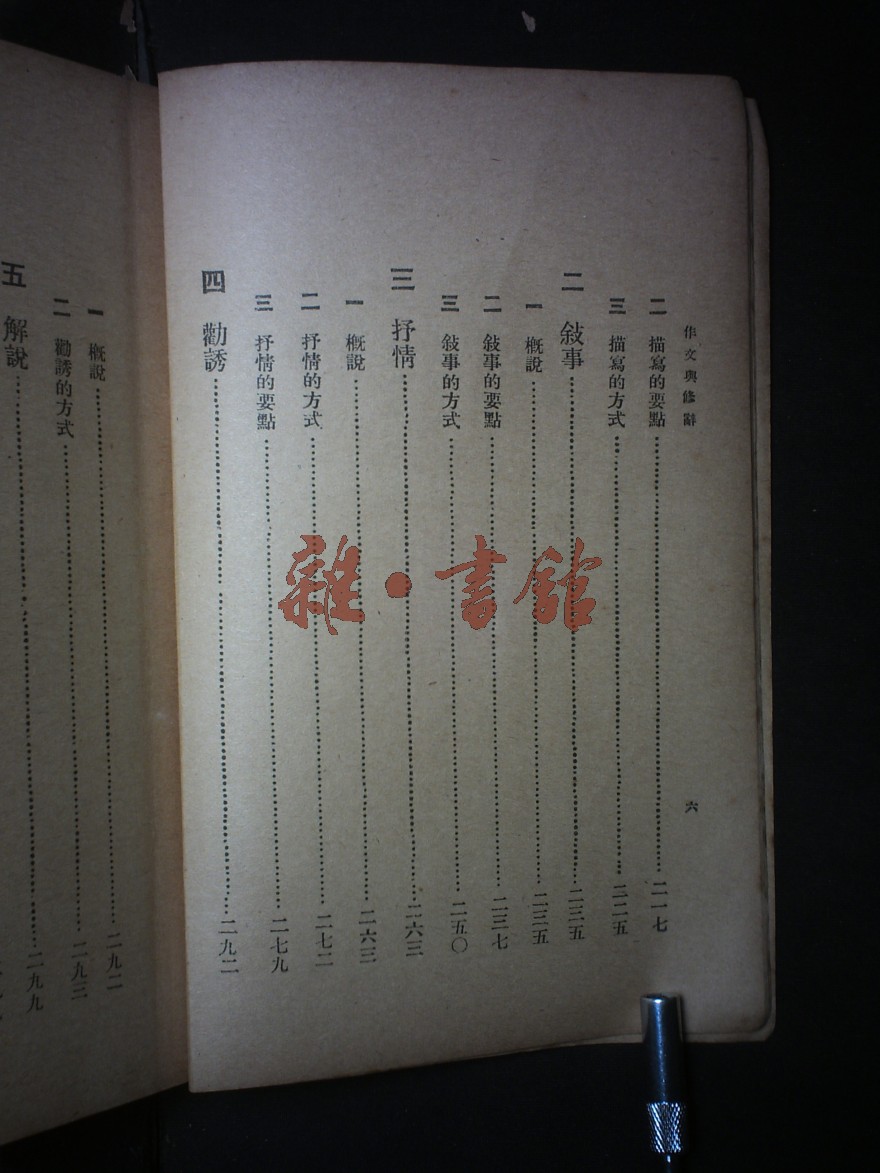 作文與修辭
六
二 描寫的要點……二一七
三 描寫的方式……二二五
二 敍事……二三五
一 概說……二三五
二 敍事的要點……二三七
三 敍事的方式……二五〇
三 抒情……二六三
一 概說……二六三
二 抒情的方式……二七二
三 抒情的要點……二七九
四 勸誘……二九二
一 概說……二九二
二 勸誘的方式……二九三
五 解說……二九九
雜·書館